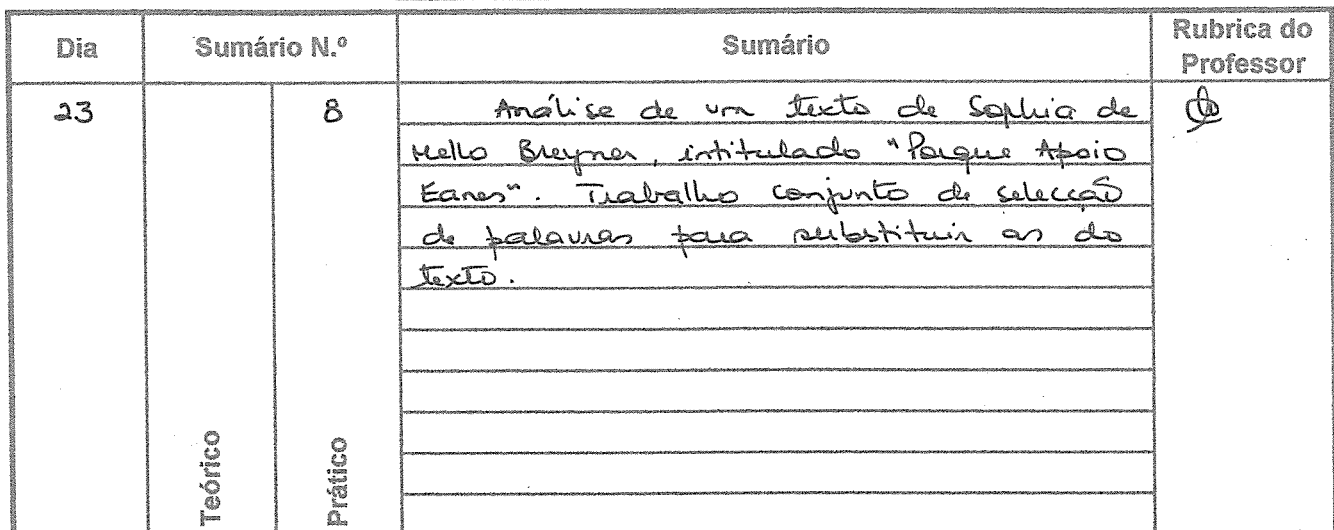 Dia Sumário N.º Sumário Rubrica do Professor
23 8 Análise de um texto de Sophia de
Mello Breyner, intitulado "Porque Apoio
Eanes". Trabalho conjunto de selecção
de palavras para substituir as do
texto.
Teórico Prático